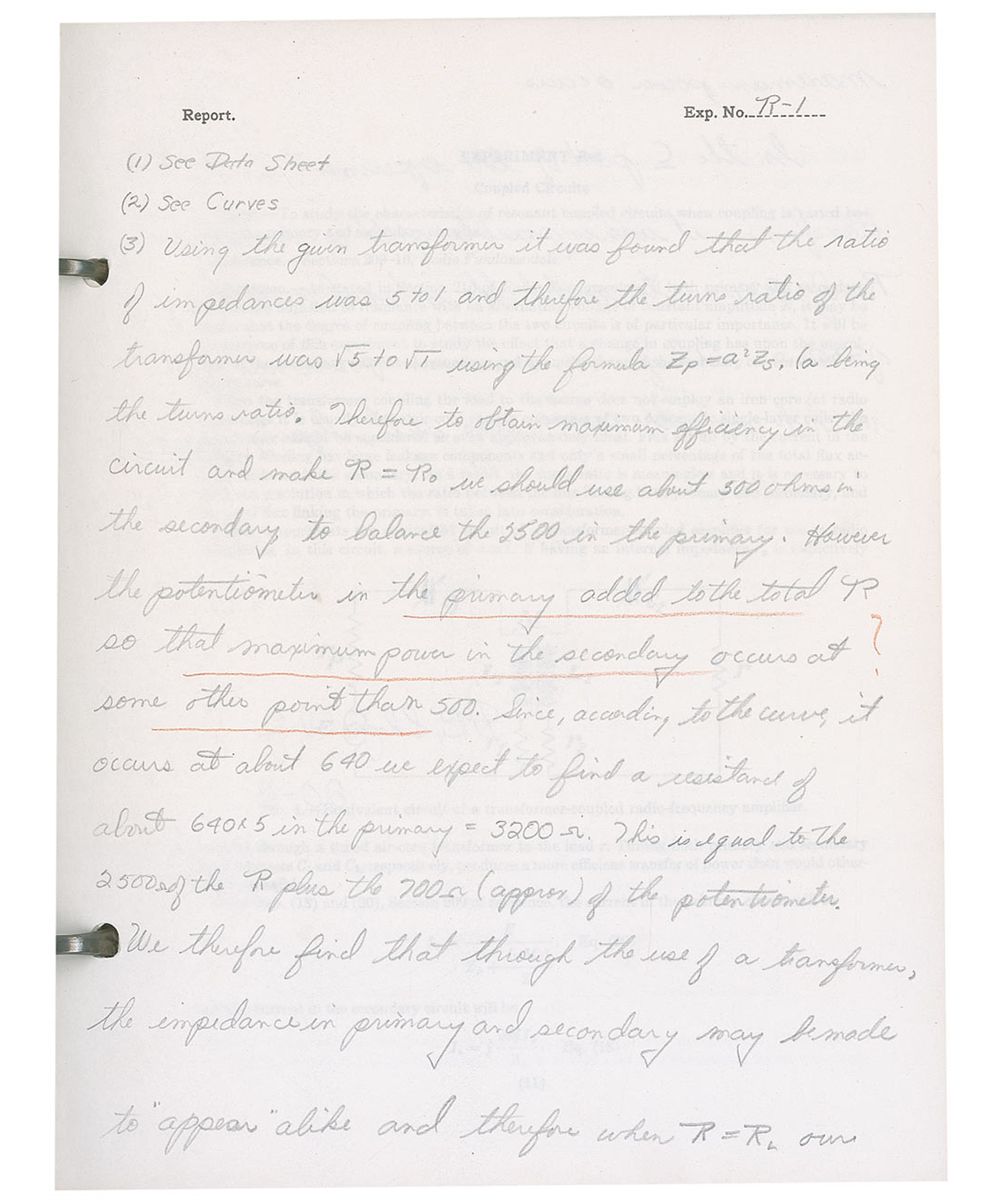 Report.
Exp. No. R-1
(1) See Data Sheet
(2) See Curves
(3) Using the given transformer it was found that the ratio
of impedances was 5 to 1 and therefore the turns ratio of the
transformer was √5 to √1 using the formula Zp = a²Zs. (a being
the turns ratio. Therefore to obtain maximum efficiency in the
circuit and make R = Ro we should use about 500 ohms in
the secondary to balance the 2500 in the primary. However
the potentiometer in the primary added to the total R
so that maximum power in the secondary occurs at
?
some other point than 500. Since, according to the curve, it
occurs at about 640 we expect to find a resistance of
about 640 x 5 in the primary = 3200 Ω. This is equal to the
2500 Ω of the R plus the 700 Ω (approx) of the potentiometer.
We therefore find that through the use of a transformer,
the impedance in primary and secondary may be made
to "appear" alike and therefore when R = RL our